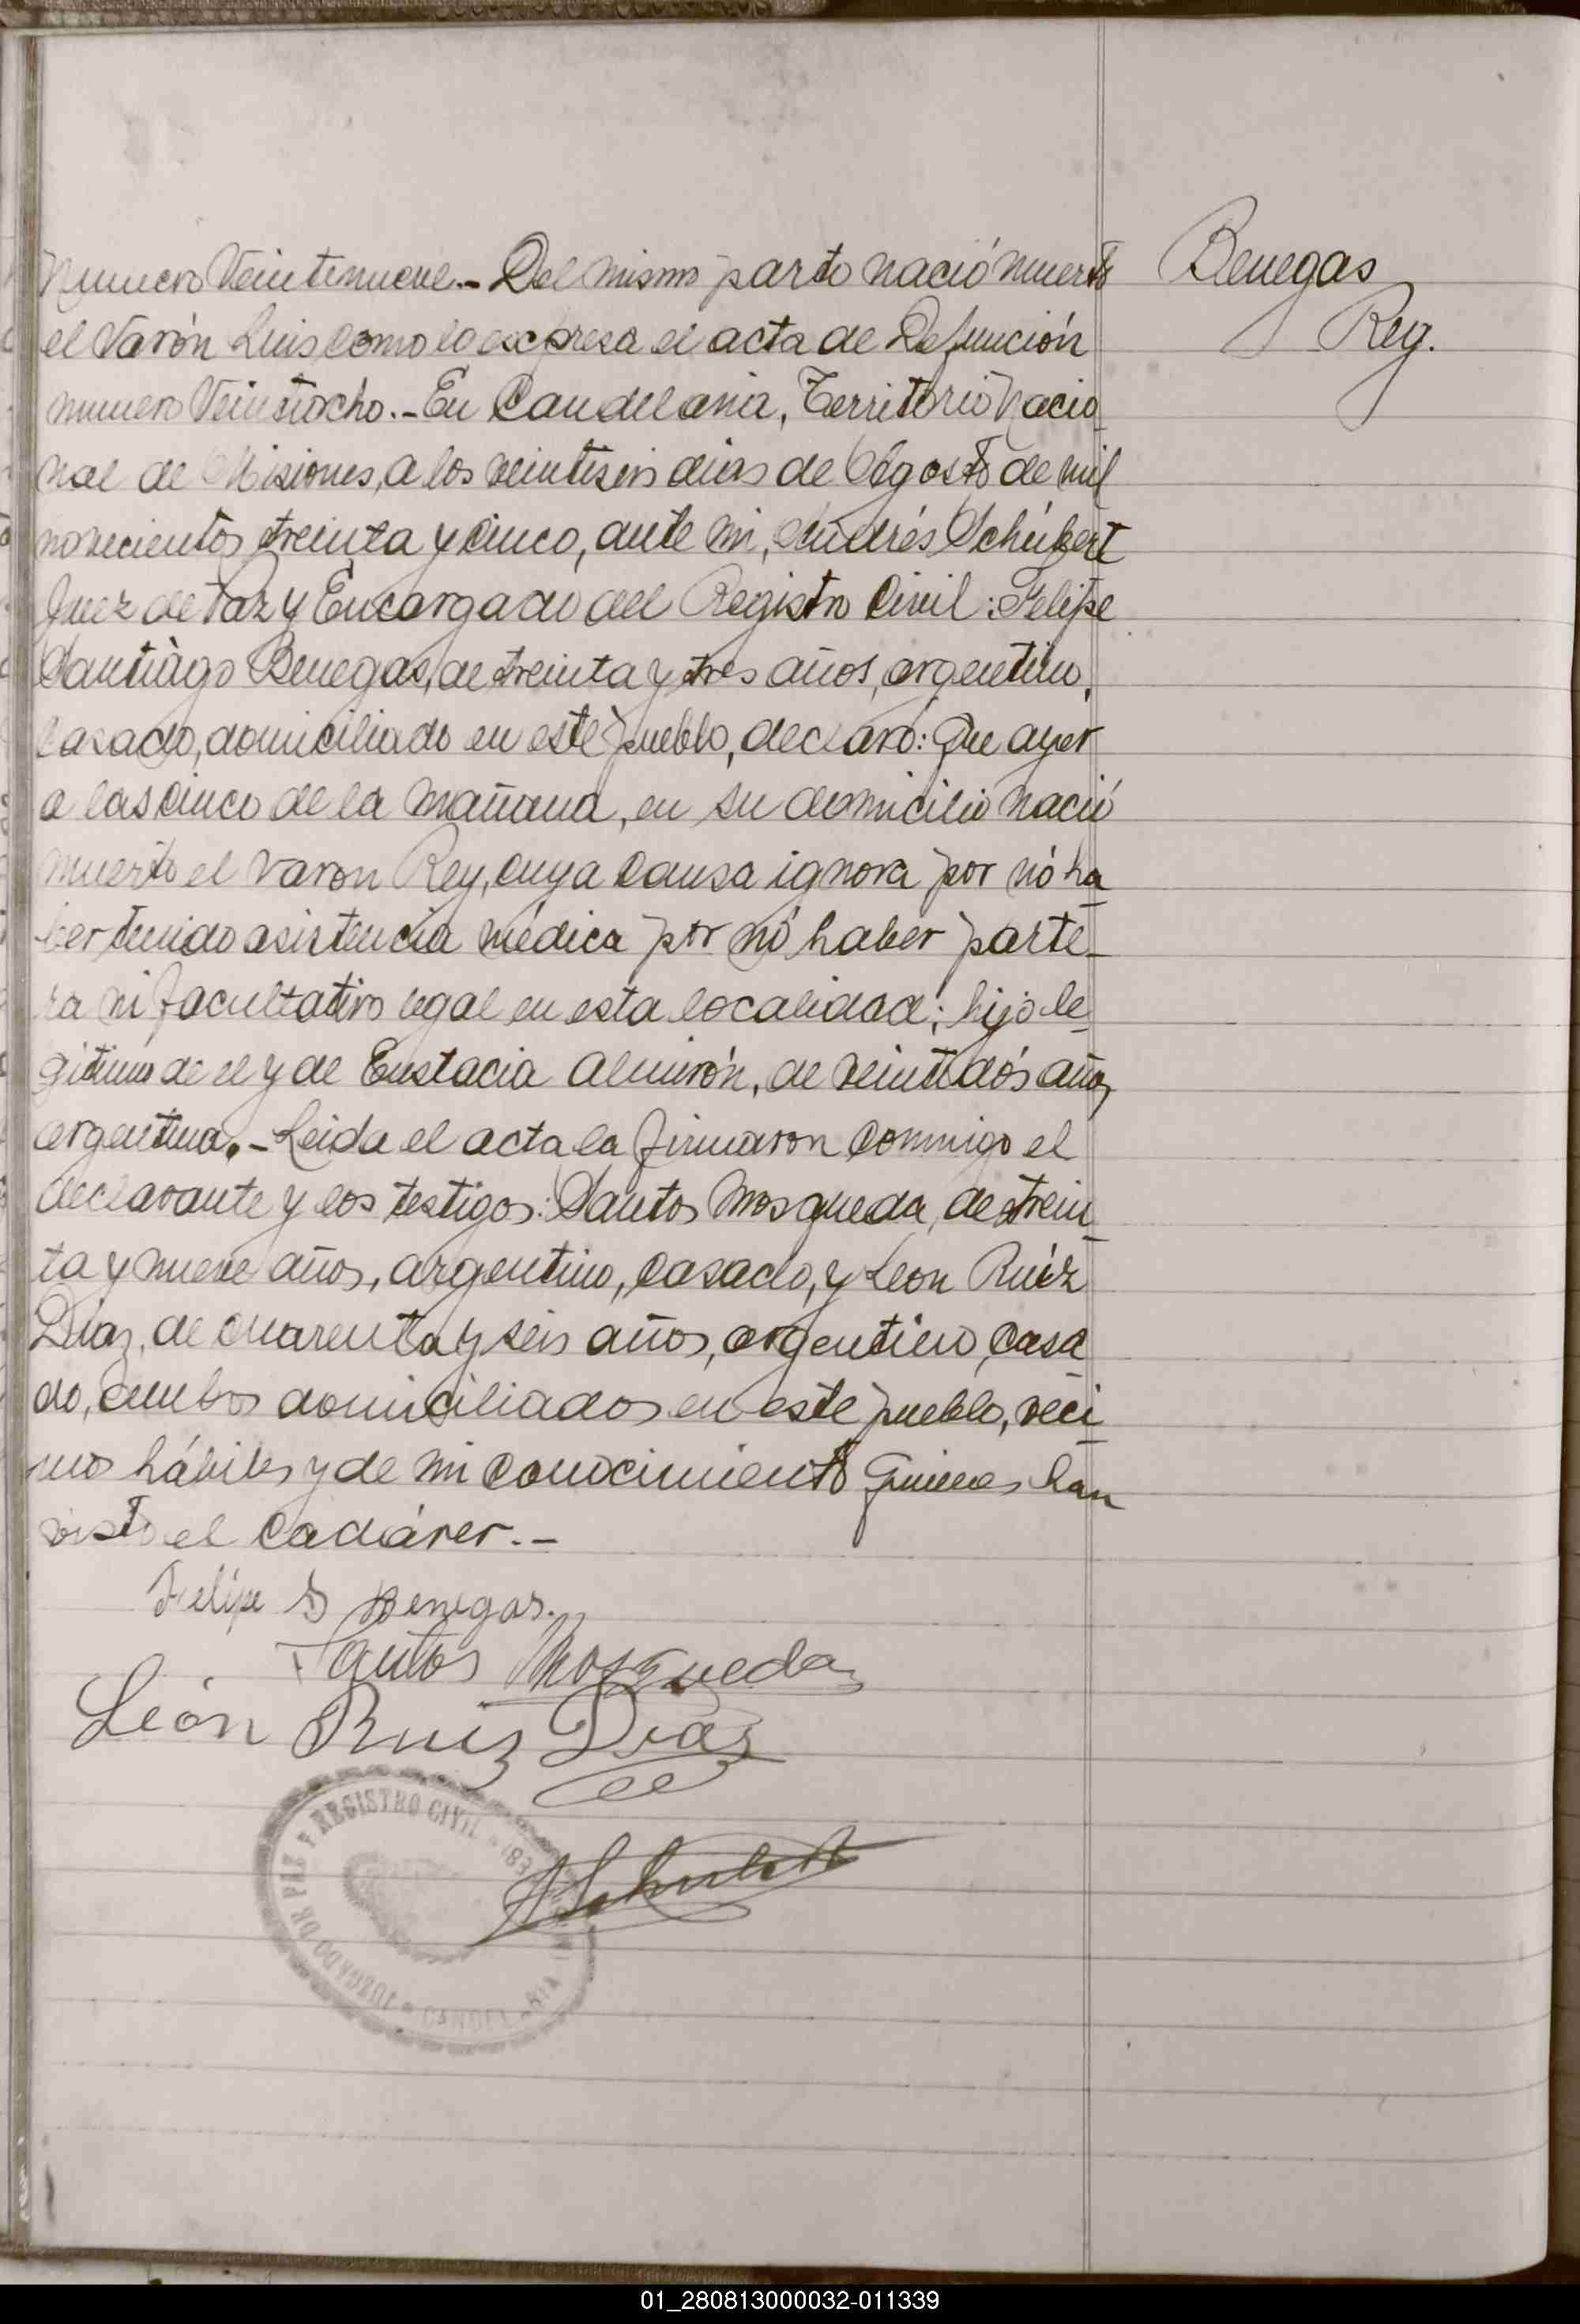 Numero Veintenueve.- Del mismo parto nació muerto
el Varón Luis como lo expresa el acta de Defunción
numero Veintiocho.- En Candelaria, Territorio Nacio_
nal de Misiones, a los veintiseis dias de Agosto de mil
novecientos treinta y cinco, ante mi, Andrés Schúbert
Juez de Paz y Encargado del Registro Civil: Felipe
Santiágo Benegas, de treinta y tres años, argentino,
casado, domiciliado en este pueblo, declaró: Que ayer
a las cinco de la mañana, en su domicilio nació
muerto el varon Rey, cuya causa ignora por nó ha_
ber tenido asistencia médica por nó haber parte_
ra ni facultativo legal en esta localidad; hijo le_
gitimo de el y de Eustacia Almirón, de veintidós años,
argentina.- Leida el acta la firmaron conmigo el
declarante y los testigos: Santos Mosqueda, de trein_
ta y nueve años, argentino, casado, y Leon Ruíz
Diaz, de cuarenta y seis años, argentino, casa
do, ambos domiciliados en este pueblo, veci_
nos hábiles y de mi conocimiento quienes han
visto el cadáver.-
Benegas
Rey.
Felipe S Benegas.
Santos Mosqueda
León Ruiz Diaz
ASchubert
JUZGADO DE PAZ Y REGISTRO CIVIL
CANDELARIA
01_280813000032-011339